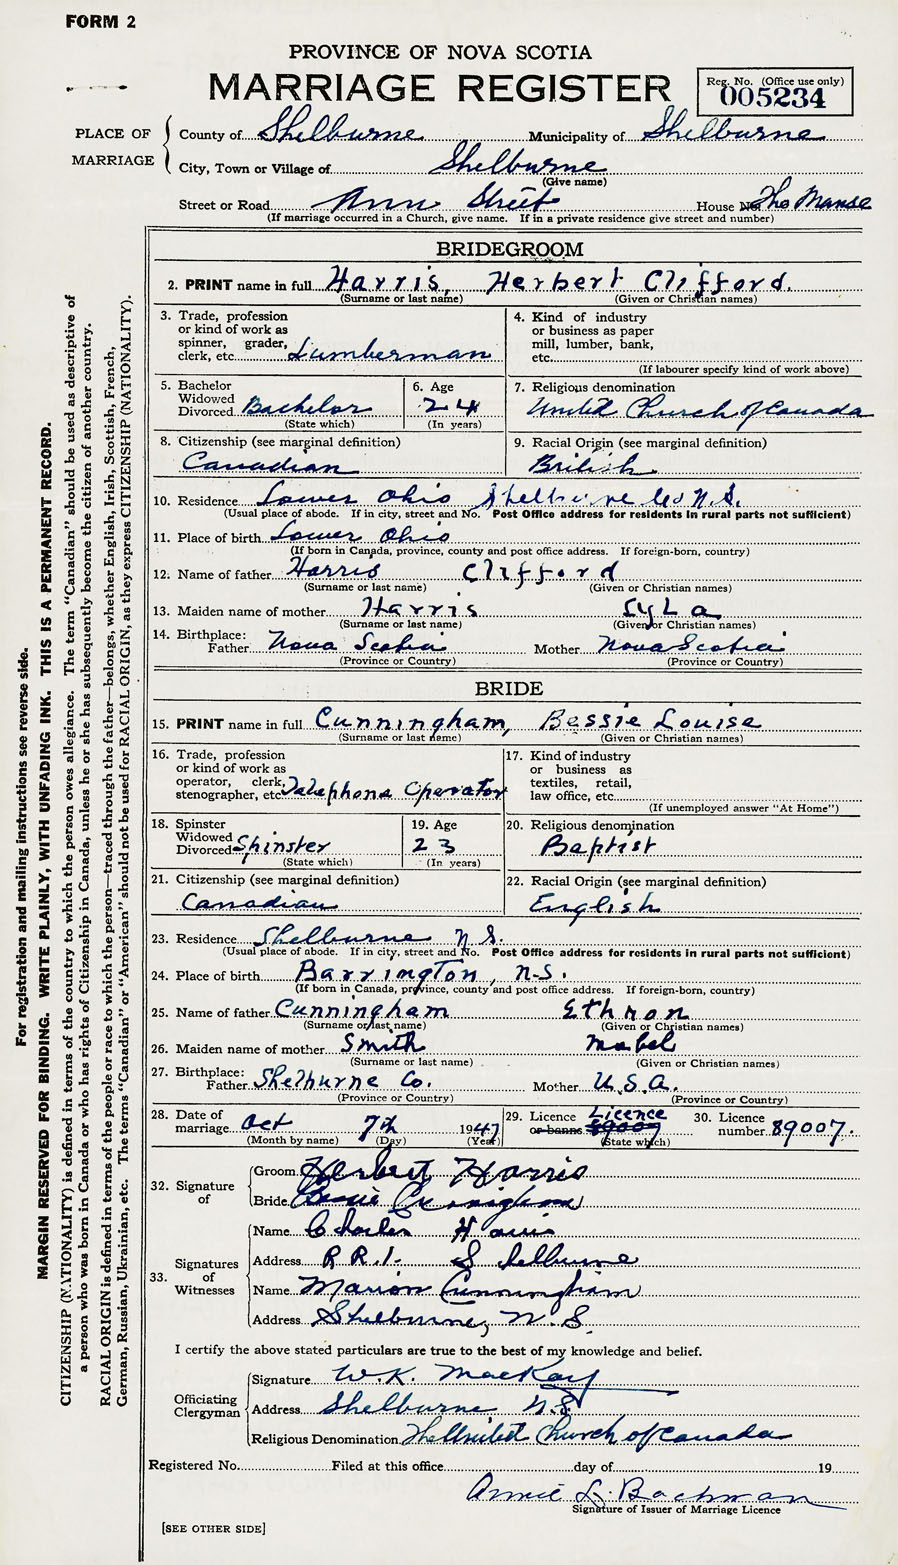 FORM 2
PROVINCE OF NOVA SCOTIA
MARRIAGE REGISTER
Reg. No. (Office use only)
005234
PLACE OF MARRIAGE
County of Shelburne Municipality of Shelburne
City, Town or Village of Shelburne
(Give name)
Street or Road Ann Street House No. The Manse
(If marriage occurred in a Church, give name. If in a private residence give street and number)
BRIDEGROOM
2. PRINT name in full Harris, Herbert Clifford.
(Surname or last name) (Given or Christian names)
3. Trade, profession or kind of work as spinner, grader, clerk, etc. Lumberman
4. Kind of industry or business as paper mill, lumber, bank, etc.
(If labourer specify kind of work above)
5. Bachelor Widowed Divorced Bachelor
(State which)
6. Age 24
(In years)
7. Religious denomination
United Church of Canada
8. Citizenship (see marginal definition)
Canadian
9. Racial Origin (see marginal definition)
British
10. Residence Lower Ohio Shelburne Co N.S.
(Usual place of abode. If in city, street and No. Post Office address for residents in rural parts not sufficient)
11. Place of birth Lower Ohio
(If born in Canada, province, county and post office address. If foreign-born, country)
12. Name of father Harris Clifford
(Surname or last name) (Given or Christian names)
13. Maiden name of mother Harris Lyla
(Surname or last name) (Given or Christian names)
14. Birthplace: Father Nova Scotia Mother Nova Scotia
(Province or Country) (Province or Country)
BRIDE
15. PRINT name in full Cunningham, Bessie Louise
(Surname or last name) (Given or Christian names)
16. Trade, profession or kind of work as operator, clerk, stenographer, etc. Telephone Operator
17. Kind of industry or business as textiles, retail, law office, etc.
(If unemployed answer "At Home")
18. Spinster Widowed Divorced Spinster
(State which)
19. Age 23
(In years)
20. Religious denomination
Baptist
21. Citizenship (see marginal definition)
Canadian
22. Racial Origin (see marginal definition)
English
23. Residence Shelburne N.S.
(Usual place of abode. If in city, street and No. Post Office address for residents in rural parts not sufficient)
24. Place of birth Barrington, N.S.
(If born in Canada, province, county and post office address. If foreign-born, country)
25. Name of father Cunningham Ethron
(Surname or last name) (Given or Christian names)
26. Maiden name of mother Smith Mabel
(Surname or last name) (Given or Christian names)
27. Birthplace: Father Shelburne Co. Mother U.S.A.
(Province or Country) (Province or Country)
28. Date of marriage Oct 7th 1947
(Month by name) (Day) (Year)
29. Licence or banns 89007 Licence
(State which)
30. Licence number 89007.
32. Signature of
Groom Herbert Harris
Bride Bessie Cunningham
33. Signatures of Witnesses
Name Charles Harris
Address R R. 1. Shelburne
Name Marion Cunningham
Address Shelburne, N.S.
I certify the above stated particulars are true to the best of my knowledge and belief.
Officiating Clergyman
Signature W.K. MacKay
Address Shelburne N.S.
Religious Denomination The United Church of Canada
Registered No. Filed at this office day of 19
Annie L. Bachman
Signature of Issuer of Marriage Licence
[SEE OTHER SIDE]
For registration and mailing instructions see reverse side.
MARGIN RESERVED FOR BINDING. WRITE PLAINLY, WITH UNFADING INK. THIS IS A PERMANENT RECORD.
CITIZENSHIP (NATIONALITY) is defined in terms of the country to which the person owes allegiance. The term "Canadian" should be used as descriptive of
a person who was born in Canada or who has rights of Citizenship in Canada, unless he or she has subsequently become the citizen of another country.
RACIAL ORIGIN is defined in terms of the people or race to which the person—traced through the father—belongs, whether English, Irish, Scottish, French,
German, Russian, Ukrainian, etc. The terms "Canadian" or "American" should not be used for RACIAL ORIGIN, as they express CITIZENSHIP (NATIONALITY).